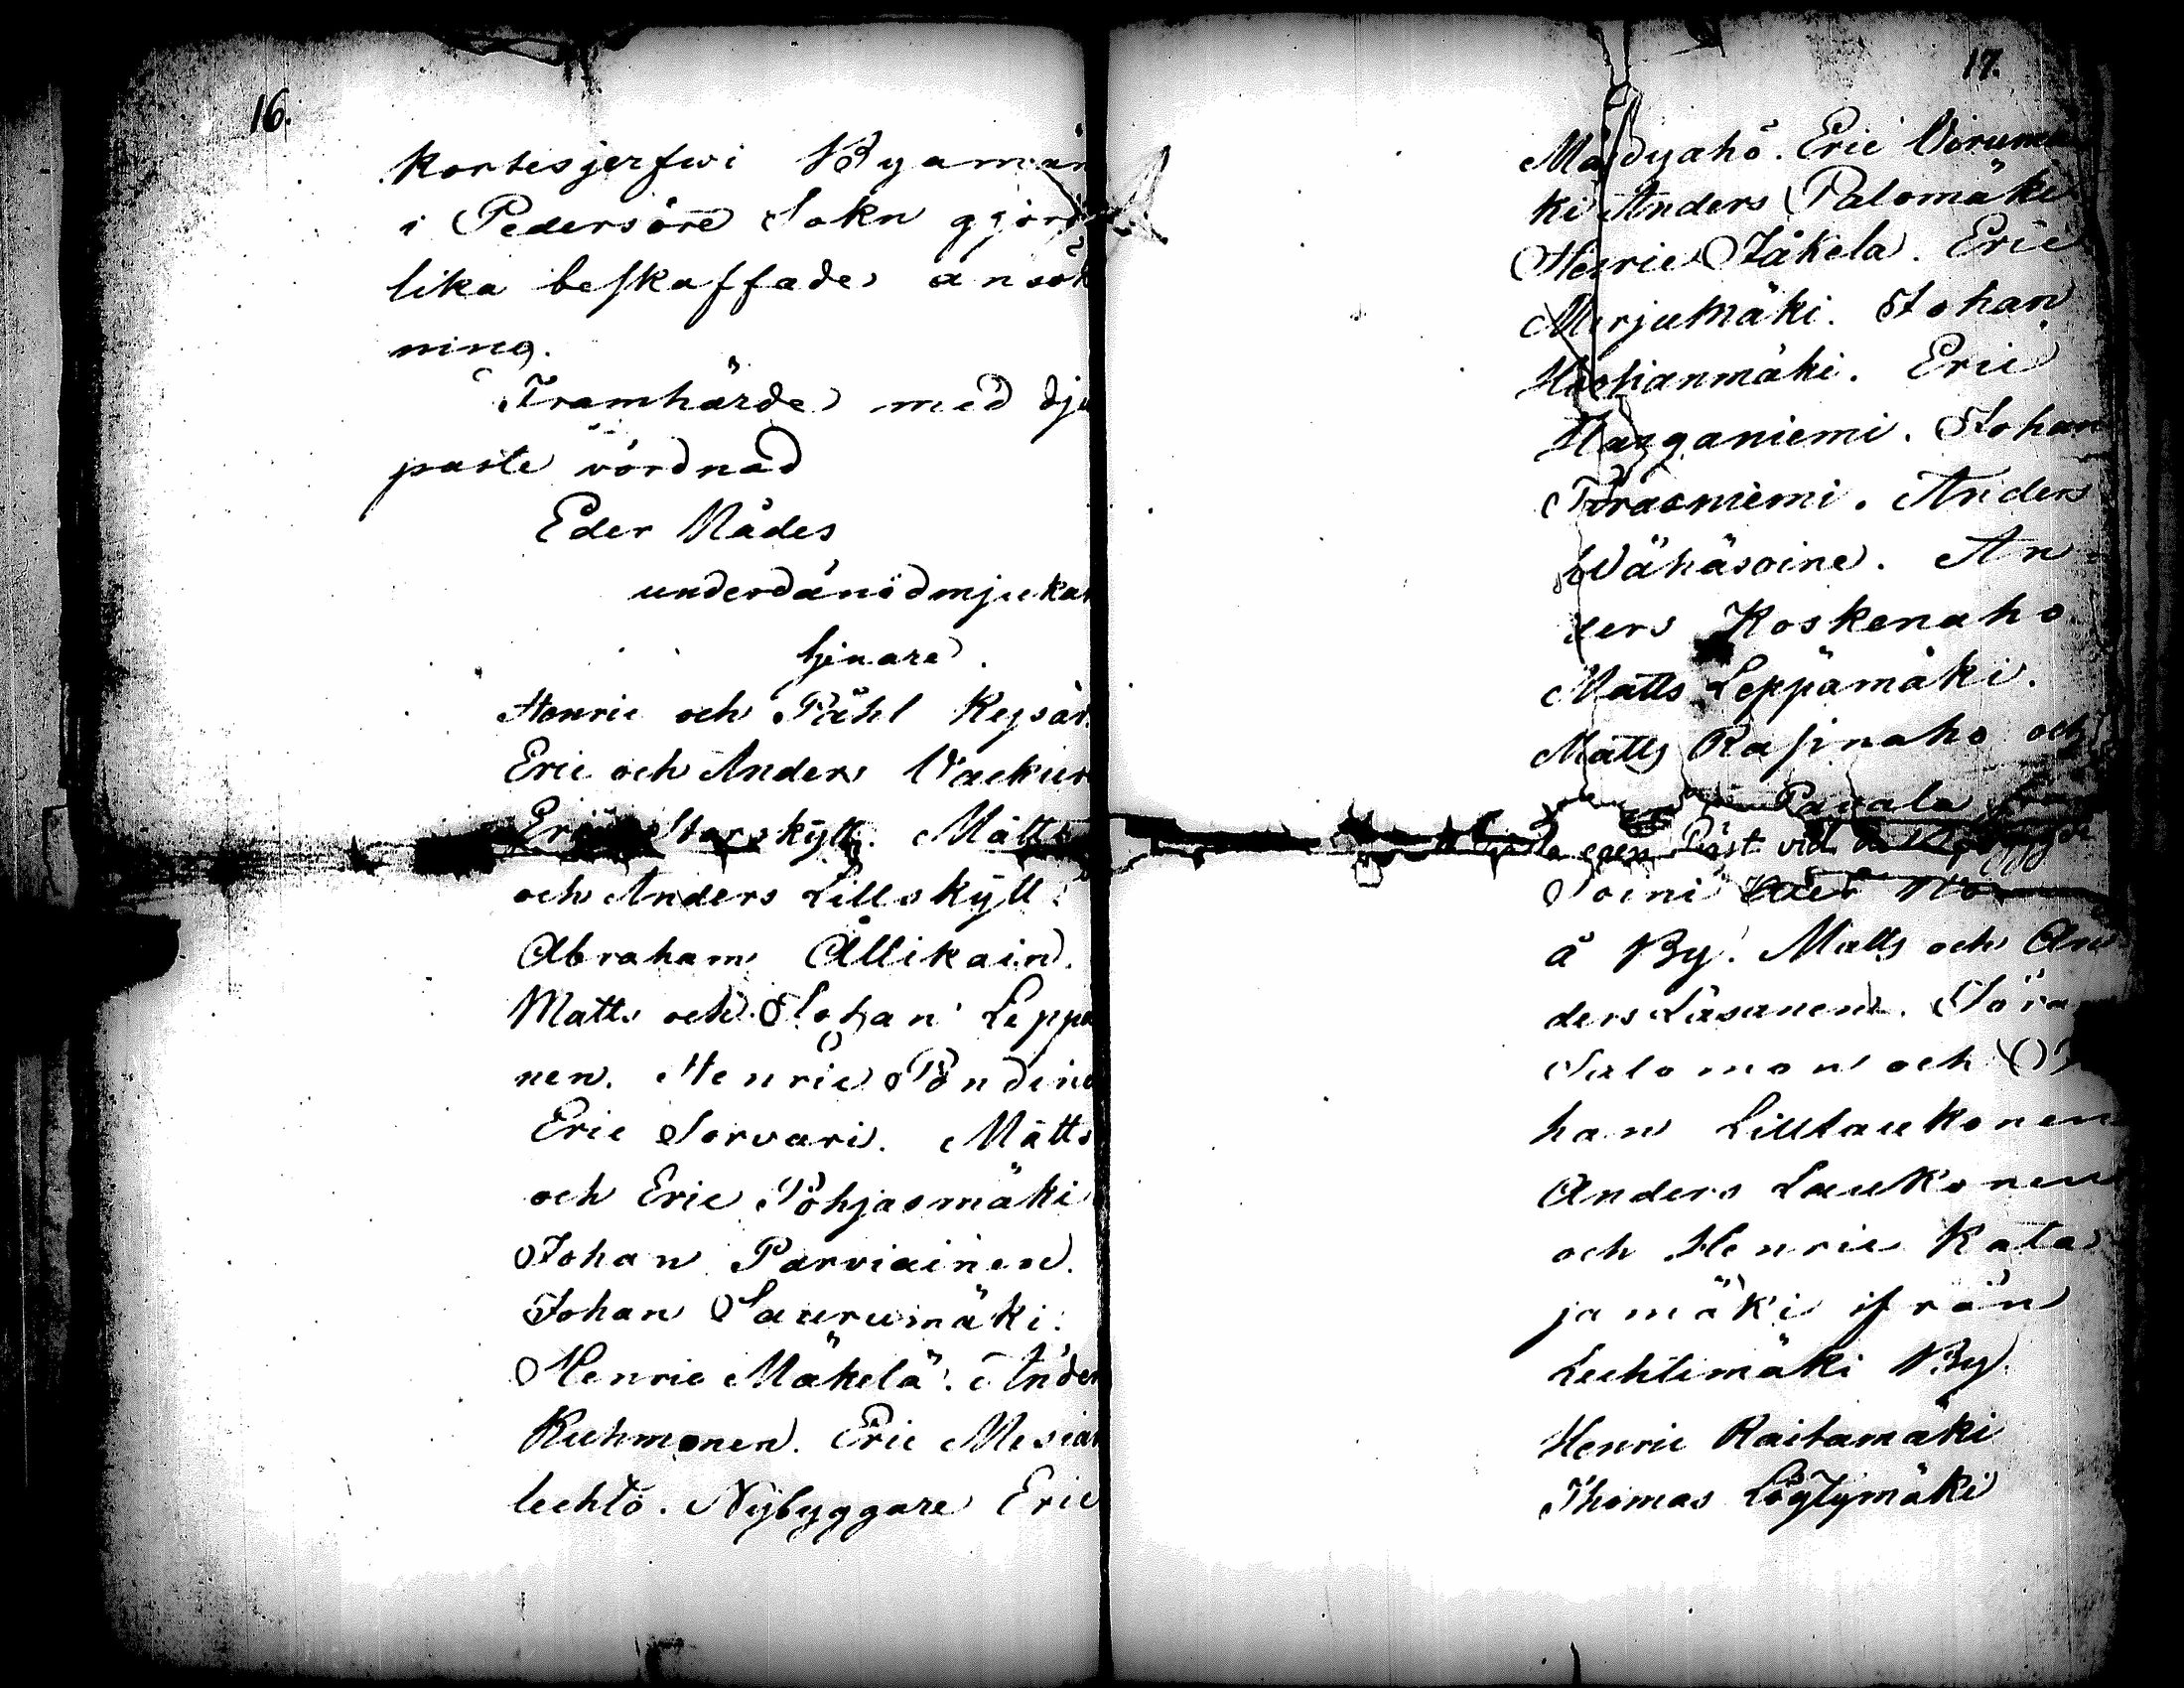 16.
Kortesjerfwi Byamän
i Pedersöre Sokn gjord
lika beskaffade ansök
ning.
Framhärde med dju
paste vördnad
Eder Nådes
underdånödmjukas
tjenare.
Henric och Påhl Keysar.
Eric och Anders Vackur
Eric Storskytt. Matts
och Anders Lillskytt.
Abraham Allikain.
Matts och Johan Leppä
nen. Henric Pöndine
Eric Sorvari. Matts
och Eric Pohjasmäki
Johan Parviainen.
Johan Saurumäki.
Henric Mäkelä. Ander
Kuhmonen. Eric Mesia
lechto. Nybyggare Eric
17.
Mändyahö. Eric Viruma
ki Anders Palomäki
Henric Jäkelä. Eric
Marjumäki. Johan
Hoohianmäki. Eric
Hanganiemi. Johan
Torasniemi. Anders
Wähäsoine. An
ders Koskenaho.
Matts Leppämäki.
Matts Rajinaho och
Pavala
egen Påst vid
Soini
å By. Matts och An
ders Läsanen. Göra
Salomon och Jo
han Lilllaukonen
Anders Laukonen
och Henric Kata
jamäki ifrån
Lechtimäki By.
Henric Raitamäki
Thomas Löytymäki